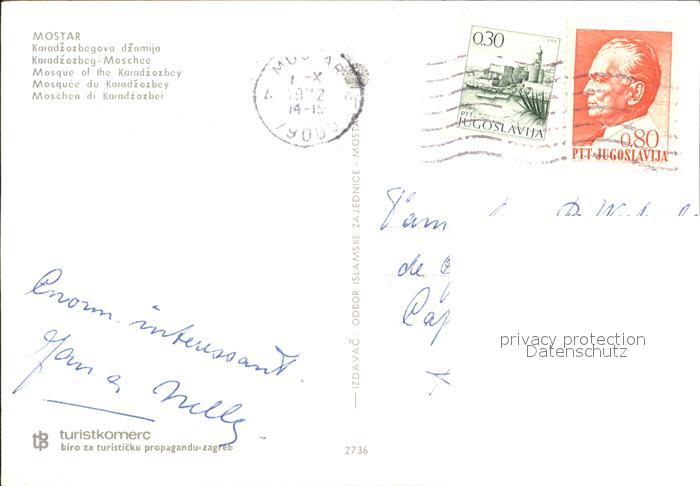 MOSTAR
Karadžozbegova džamija
Karadžozbeg-Moschee
Mosque of the Karadžozbey
Mosquée du Karadžozbey
Moschea di Karadžozbei
MOSTAR
1972
14-15
79000
0.30
PTT
JUGOSLAVIJA
0,80
PTT-JUGOSLAVIJA
IZDAVAČ: ODBOR ISLAMSKE ZAJEDNICE - MOSTAR
Fam
de
Cap
privacy protection
Datenschutz
Enorm interessant.
Jan en Nelly.
turistkomerc
biro za turističku propagandu-zagreb
2736